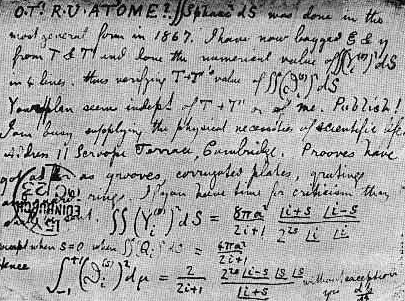 O. T'. R. U. AT 'OME? ∬ Spharc² dS was done in the
most general form in 1867. I have now bagged ξ & η
from T & T' and done the numerical value of ∬(Yᵢ⁽ˢ⁾)² dS
in 4 lines. thus verifying T + T''s value of ∬(ϑᵢ⁽ˢ⁾)² dS
Your plan seems indepᵗ of T + T' or of me. Publish!
I am busy supplying the physical necessities of scientific life.
Address 11 Scroope Terrace, Cambridge. Prooves have
as grooves, corrugated plates, gratings
rings. If you have time for criticism then
EDINBURGH
∬(Yᵢ⁽ˢ⁾)² dS = 8πa²/(2i+1) · |i+s |i-s / (2²ˢ |i |i)
except when s=0 when ∬ Qᵢ² dS = 4πa²/(2i+1)
hence
∫₋₁⁺¹ (ϑᵢ⁽ˢ⁾)² dμ = 2/(2i+1) · 2²ˢ |i-s |s |s / |i+s without exception
yrs dp/dt